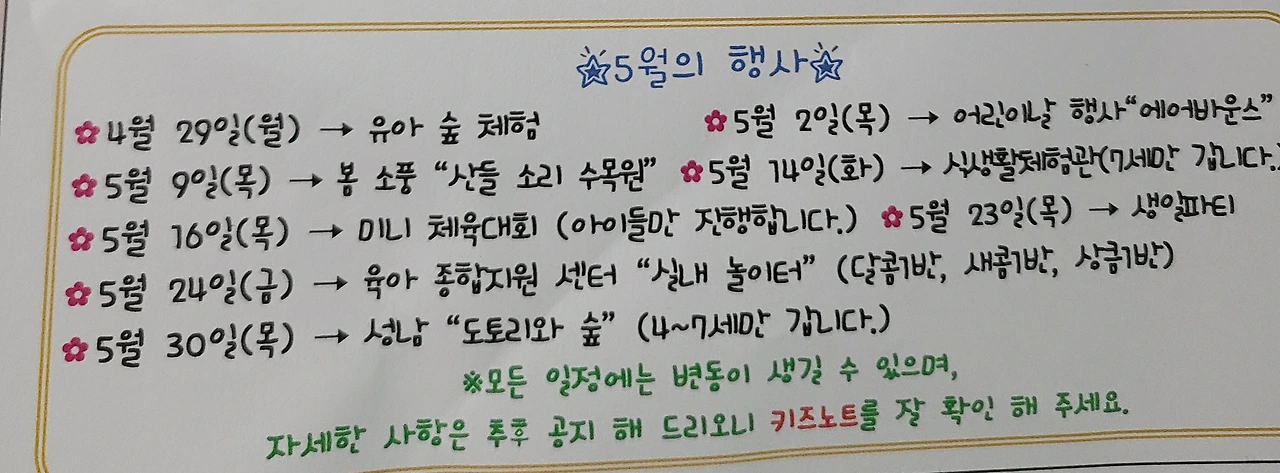 5월의 행사
4월 29일(월) → 유아 숲 체험 5월 2일(목) → 어린이날 행사“에어바운스”
5월 9일(목) → 봄 소풍 “산들 소리 수목원” 5월 14일(화) → 식생활체험관(7세만 갑니다.)
5월 16일(목) → 미니 체육대회 (아이들만 진행합니다.) 5월 23일(목) → 생일파티
5월 24일(금) → 육아 종합지원 센터 “실내 놀이터” (달콤1반, 새콤1반, 상콤1반)
5월 30일(목) → 성남 “도토리와 숲” (4~7세만 갑니다.)
※모든 일정에는 변동이 생길 수 있으며,
자세한 사항은 추후 공지 해 드리오니 키즈노트를 잘 확인 해 주세요.